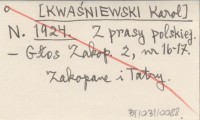 [KWAŚNIEWSKI Karol]
N. 1924. Z prasy polskiej.
- Głos Zakop 2, nr 16-17.
Zakopane i Tatry.